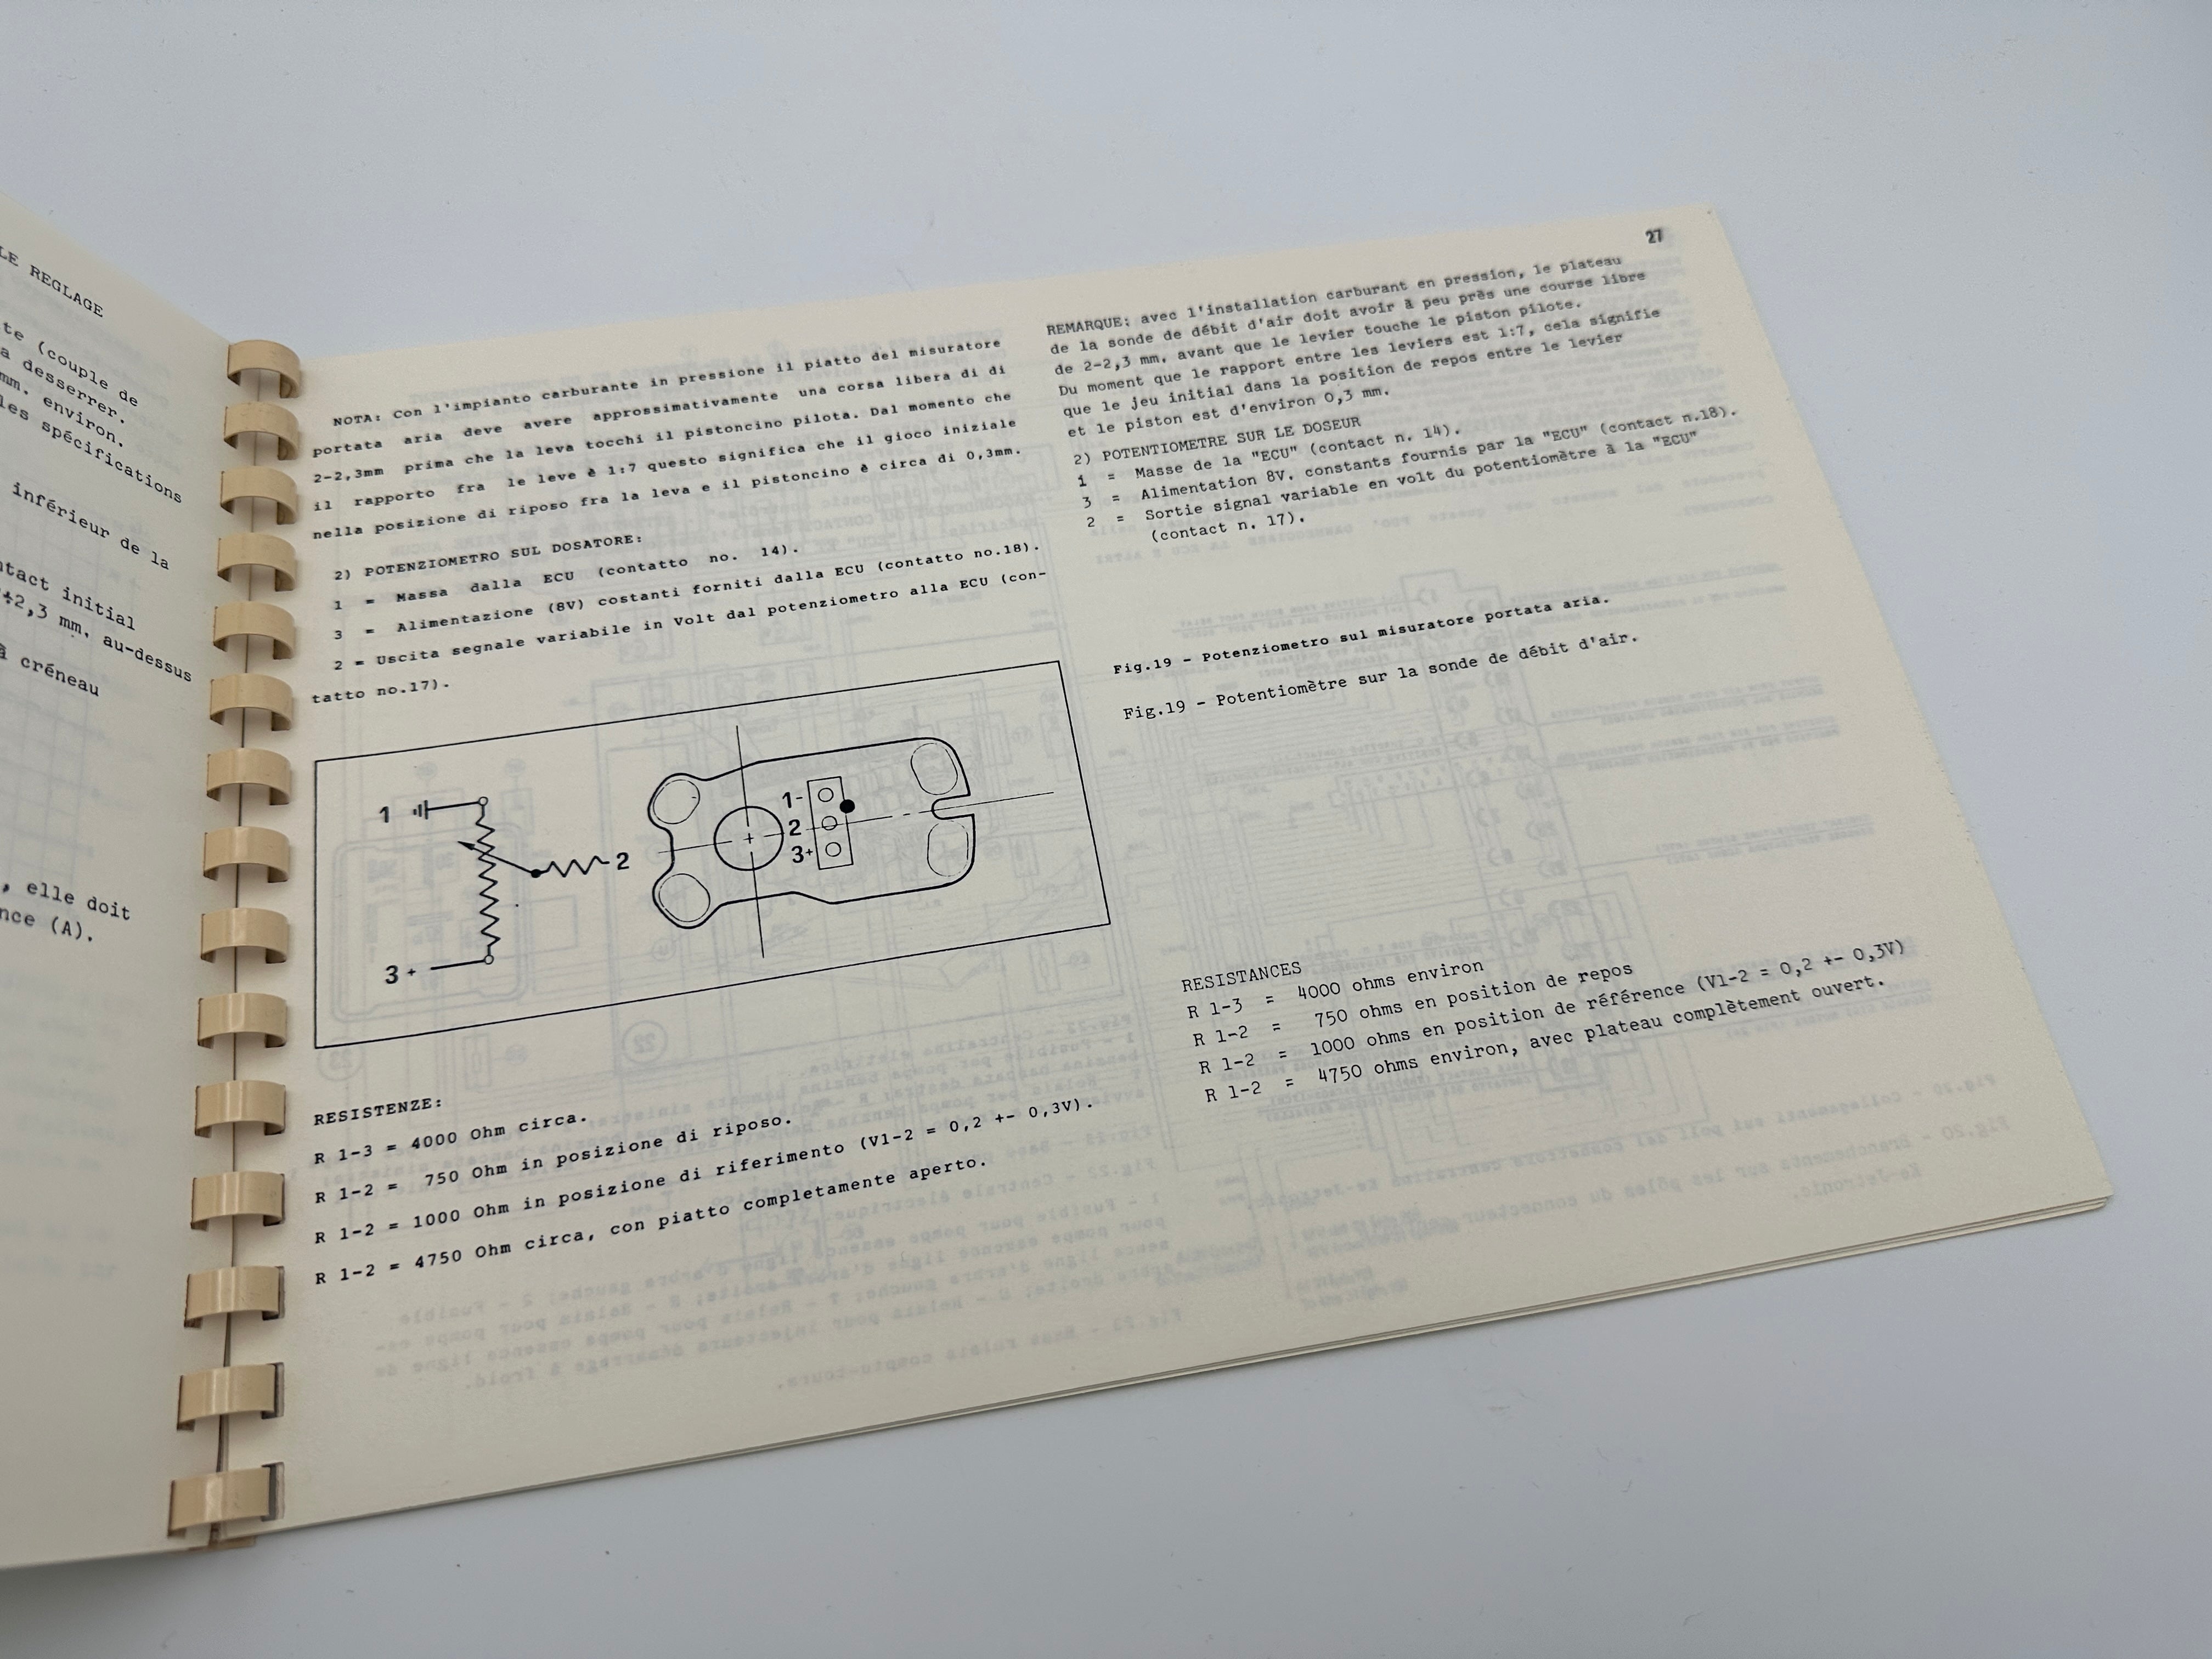 LE REGLAGE
te (couple de
a desserrer.
mm. environ.
les spécifications
inférieur de la
ntact initial
÷2,3 mm. au-dessus
à créneau
, elle doit
nce (A).
27
NOTA: Con l'impianto carburante in pressione il piatto del misuratore
portata aria deve avere approssimativamente una corsa libera di di
2-2,3mm prima che la leva tocchi il pistoncino pilota. Dal momento che
il rapporto fra le leve è 1:7 questo significa che il gioco iniziale
nella posizione di riposo fra la leva e il pistoncino è circa di 0,3mm.
2) POTENZIOMETRO SUL DOSATORE:
1 = Massa dalla ECU (contatto no. 14).
3 = Alimentazione (8V) costanti forniti dalla ECU (contatto no.18).
2 = Uscita segnale variabile in Volt dal potenziometro alla ECU (con-
tatto no.17).
1
2
3 +
1-
2
3+
RESISTENZE:
R 1-3 = 4000 Ohm circa.
R 1-2 = 750 Ohm in posizione di riposo.
R 1-2 = 1000 Ohm in posizione di riferimento (V1-2 = 0,2 +- 0,3V).
R 1-2 = 4750 Ohm circa, con piatto completamente aperto.
REMARQUE: avec l'installation carburant en pression, le plateau
de la sonde de débit d'air doit avoir à peu près une course libre
de 2-2,3 mm. avant que le levier touche le piston pilote.
Du moment que le rapport entre les leviers est 1:7, cela signifie
que le jeu initial dans la position de repos entre le levier
et le piston est d'environ 0,3 mm.
2) POTENTIOMETRE SUR LE DOSEUR
1 = Masse de la "ECU" (contact n. 14).
3 = Alimentation 8V. constants fournis par la "ECU" (contact n.18).
2 = Sortie signal variable en volt du potentiomètre à la "ECU"
(contact n. 17).
Fig.19 - Potenziometro sul misuratore portata aria.
Fig.19 - Potentiomètre sur la sonde de débit d'air.
RESISTANCES
R 1-3 = 4000 ohms environ
R 1-2 = 750 ohms en position de repos
R 1-2 = 1000 ohms en position de référence (V1-2 = 0,2 +- 0,3V)
R 1-2 = 4750 ohms environ, avec plateau complètement ouvert.